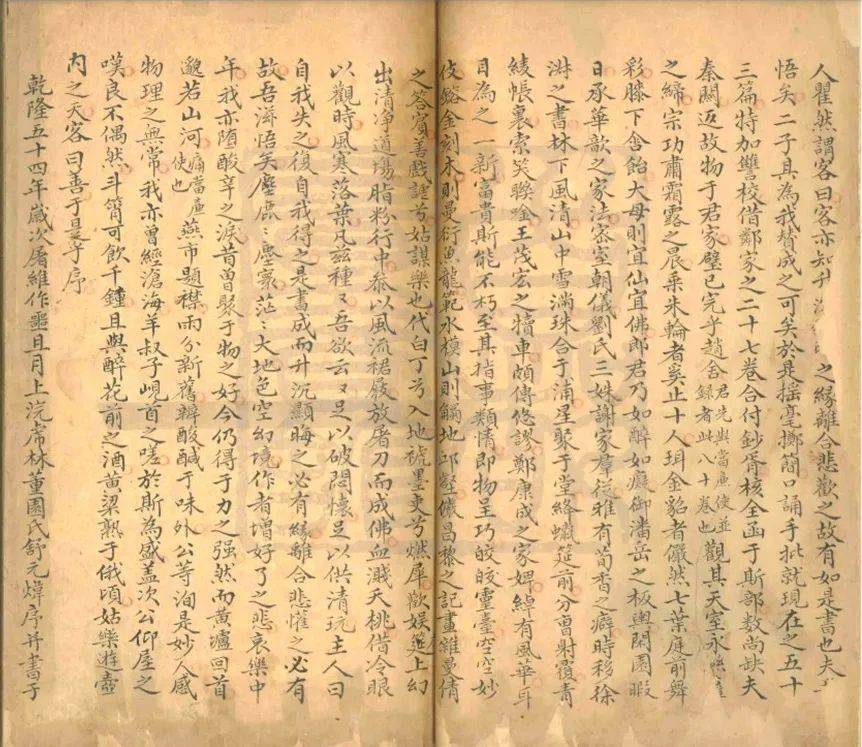 人瞿然謂客曰客亦知升沉之緣離合悲歡之故有如是書也夫
悟矣二子其為我贊成之可矣於是搖毫擲簡口誦手批就現在之五十
三篇特加讐校借鄰家之二十七卷合付鈔胥核全函于斯部數尚缺夫
秦關返故物于君家璧已完乎趙舍君先與當廉使並錄者此八十卷也觀其天室永
之締宗功肅霜露之晨乘朱輪者奚止十人珥金貂者儼然七葉庭前舞
彩膝下含飴大母則宜仙宜佛郎君乃如醉如癡御潘岳之板輿閑園暇
日承華歆之家法密室朝儀劉氏三姝謝家羣從雅有荀香之癖時移徐
淦之書林下風清山中雪滿珠合于浦星聚于堂絳蠟筵前分曹射覆青
綾帳裏索笑聯吟王茂宏之犢車頗傳悠謬鄭康成之家婢綽有風華耳
目為之一新富貴斯能不朽至其指事類情即物呈巧皎皎靈臺空空妙
伎鎔金刻木則曼衍魚龍範水模山則觸地邱壑儼昌黎之記畫雜曼倩
之答賓善戲謔兮姑謀樂也代白丁兮入地褫墨吏兮燃犀歡娱筵上幻
出清净道場脂粉行中叅以風流裙屐放屠刀而成佛血濺夭桃借冷眼
以觀時風寒落葉凡兹種〻吾欲云〻足以破悶懷足以供清玩主人曰
自我失之復自我得之是書成而升沉顯晦之必有緣離合悲懽之必有
故吾滋悟矣塵塵〻塵寰茫〻大地色空幻境作者增好了之悲哀樂中
年我亦墮酸辛之淚昔曾聚于物之好今仍得于力之强然而黄壚回首
邈若山河痛當廉使也燕市題襟雨分新舊韓酸醎于味外公等洵是妙人感
物理之無常我亦曾經滄海羊叔子峴首之嗟於斯為盛盖次公仰屋之
嘆良不偶然斗筲可飲千鍾且與醉花前之酒黄粱熟于俄頃姑樂遊壺
内之天客曰善于是乎序
乾隆五十四年歲次屠維作噩且月上浣虎林董園氏舒元煒序并書于